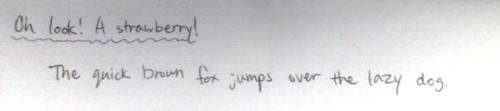 Oh look! A strawberry!
The quick brown fox jumps over the lazy dog.